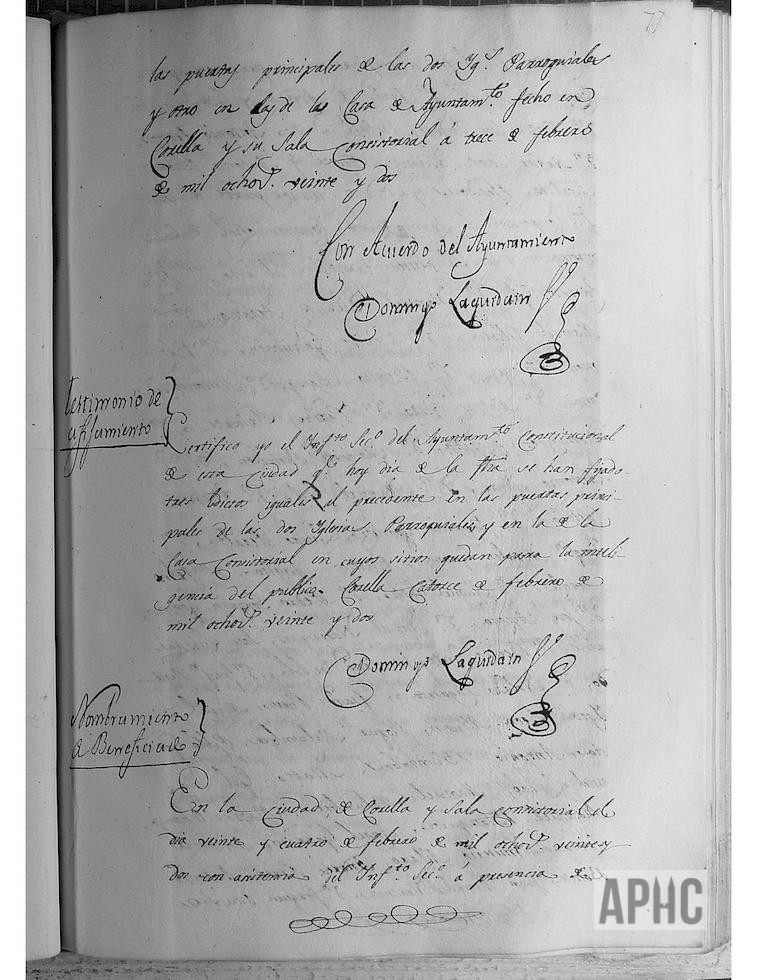 77
las puertas principales de las dos Ygs. Parroquiales
y otro en las de la Casa de Ayuntamto. fecho en
Corella y su Sala Consistorial á trece de febrero
de mil ochos. veinte y dos
Con Acuerdo del Ayuntamiento
Domingo Laquidain
Testimonio de
afijamiento
Certifico yo el Infto. Seco. del Ayuntamto. Constitucional
de esta Ciudad qe. hoy dia de la fha se han fijado
tres Edictos iguales al precedente en las puertas princi-
pales de las dos Yglesias Parroquiales y en la de la
Casa Consistorial en cuyos sitios quedan para la inteli-
gencia del publico. Corella Catorce de febrero de
mil ochos. veinte y dos
Domingo Laquidain
Nombramiento
de Beneficiado
En la Ciudad de Corella y Sala Consistorial el
dia veinte y cuatro de febrero de mil ochos. veinte y
dos con asistencia del Infto. Seco. á presencia
APHC